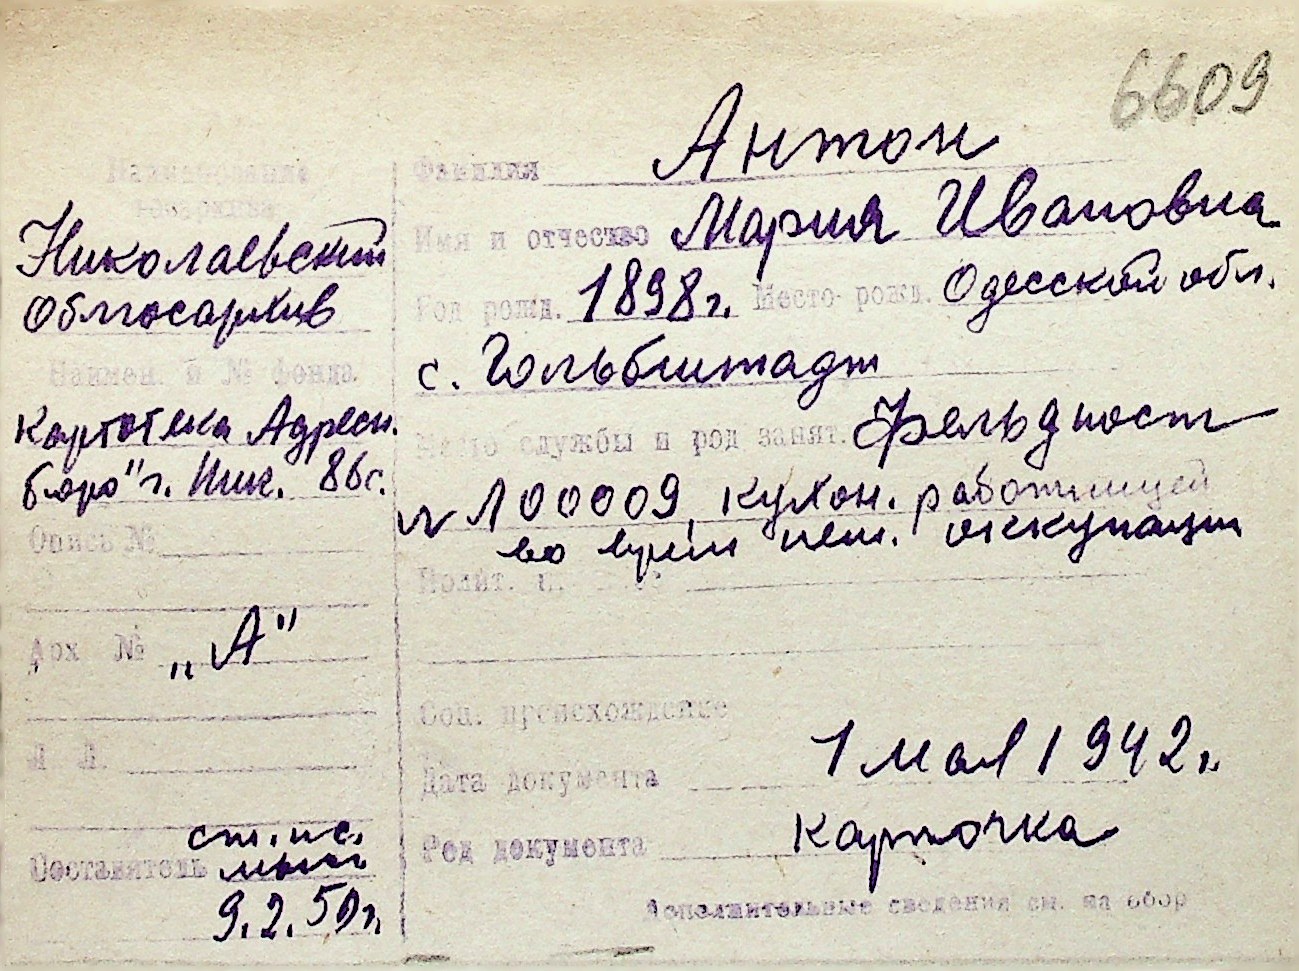 6609
Наименование
Фамилия Антон
Николаевский
Имя и отчество Мария Ивановна
облгосархив
Год рожд. 1898г. Место рожд. Одесской обл.
Наимен. и № фонда
с. Гольбштадт
Картотека Адресн.
Место службы и род занят. Фельдпост
бюро" г. Ник. 86с.
N 100009, кухон. работницей
во врем нем. оккупации
Опись №
Полит.
Арх № „А"
Соц. происхождение
Л Л.
Дата документа 1 мая 1942г.
ст. ис.
Род документа карточка
Составитель
9.2.50г.
Дополнительные сведения см. на обор